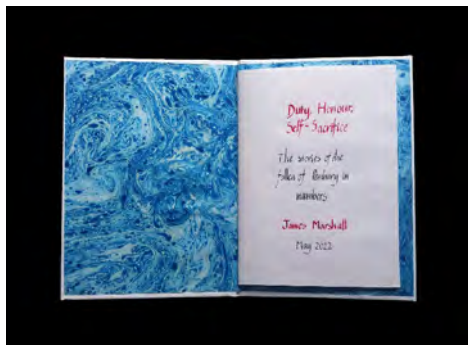 Duty, Honour,
Self-Sacrifice
The stories of the
fallen of in
numbers
James Marshall
May 2022